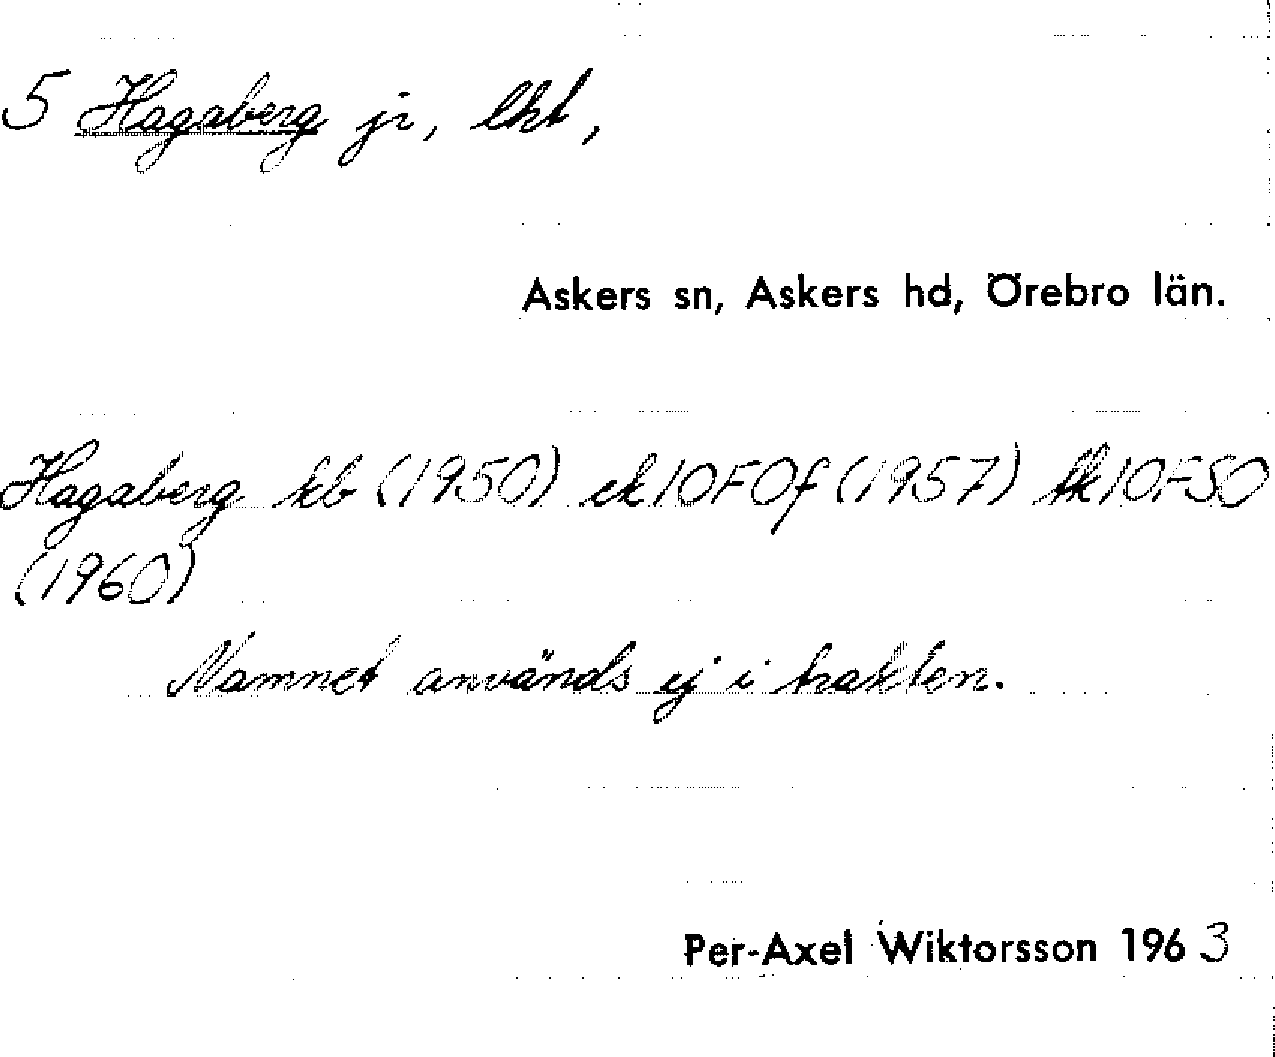 5 Hagaberg jr, lht,
Askers sn, Askers hd, Örebro län.
Hagaberg kb (1950) ek10F0f (1957) tk10FSO
(1960)
Namnet används ej i trakten.
Per-Axel Wiktorsson 1963